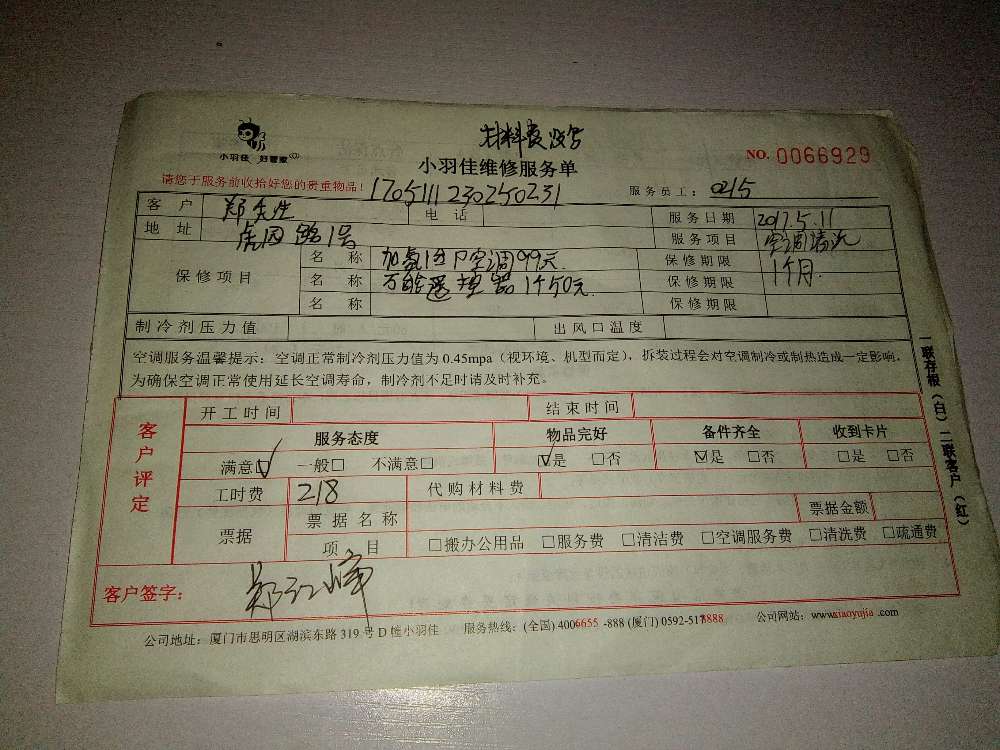 小羽佳 好管家
材料费
小羽佳维修服务单
NO. 0066929
请您于服务前收拾好您的贵重物品!
1705111230250231
服务员工: 0215
客户 郑先生 电话 服务日期 2017.5.11
地址 虎园路1号 服务项目 空调清洗
保修项目 名称 加氨1台P空调99元 保修期限 1个月
名称 万能遥控器1个50元 保修期限
名称 保修期限
制冷剂压力值 出风口温度
空调服务温馨提示:空调正常制冷剂压力值为 0.45mpa(视环境、机型而定),拆装过程会对空调制冷或制热造成一定影响,
为确保空调正常使用延长空调寿命,制冷剂不足时请及时补充。
客户评定
开工时间 结束时间
服务态度 物品完好 备件齐全 收到卡片
满意☑ 一般□ 不满意□ ☑是 □否 ☑是 □否 □是 □否
工时费 218 代购材料费
票据 票据名称 票据金额
项目 □搬办公用品 □服务费 □清洁费 □空调服务费 □清洗费 □疏通费
客户签字:
公司地址:厦门市思明区湖滨东路 319 号 D 幢小羽佳 服务热线:(全国) 4006655 -888 (厦门) 0592-5178888 公司网站:www.xiaoyujia .com
一联存根(白) 二联客户(红)